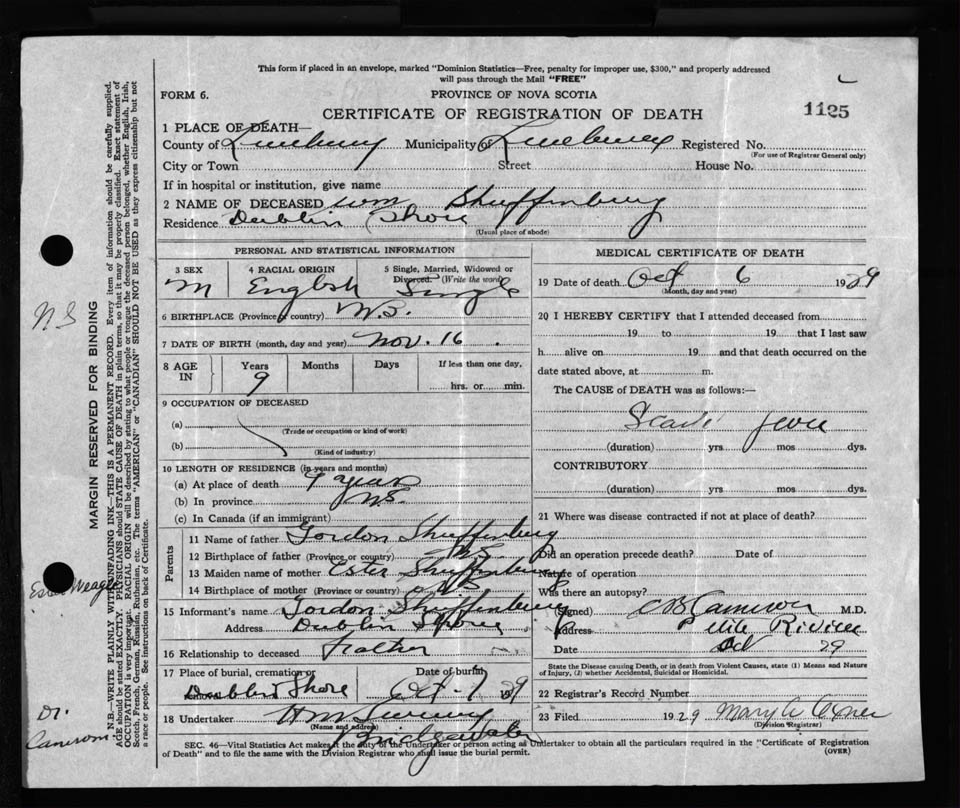 This form if placed in an envelope, marked "Dominion Statistics—Free, penalty for improper use, $300," and properly addressed
will pass through the Mail "FREE"
FORM 6.
PROVINCE OF NOVA SCOTIA
CERTIFICATE OF REGISTRATION OF DEATH
1125
1 PLACE OF DEATH—
County of Lunenburg Municipality of Lunenburg Registered No.
(For use of Registrar General only)
City or Town Street House No.
If in hospital or institution, give name
2 NAME OF DECEASED Wm Shuffenburg
Residence Dublin Shore
(Usual place of abode)
PERSONAL AND STATISTICAL INFORMATION
3 SEX 4 RACIAL ORIGIN 5 Single, Married, Widowed or
Divorced. (Write the word)
M English Single
6 BIRTHPLACE (Province or country) N.S.
7 DATE OF BIRTH (month, day and year) Nov. 16
8 AGE IN Years Months Days If less than one day,
9 hrs. or min.
9 OCCUPATION OF DECEASED
(a)
(Trade or occupation or kind of work)
(b)
(Kind of industry)
10 LENGTH OF RESIDENCE (in years and months)
(a) At place of death 9 years
(b) In province N.S.
(c) In Canada (if an immigrant)
Parents
11 Name of father Gordon Shuffenburg
12 Birthplace of father (Province or country) N.S
13 Maiden name of mother Ester Shuffenburg
14 Birthplace of mother (Province or country) N.S
15 Informant's name Gordon Shuffenburg
Address Dublin Shore
16 Relationship to deceased Father
17 Place of burial, cremation or Date of burial
Dublin Shore Oct-7 1929
18 Undertaker
(Name and address)
Bridgewater
MEDICAL CERTIFICATE OF DEATH
19 Date of death Oct 6 1929
(Month, day and year)
20 I HEREBY CERTIFY that I attended deceased from
19 to 19 that I last saw
h alive on 19 and that death occurred on the
date stated above, at m.
The CAUSE of DEATH was as follows:—
Scarlet fever
(duration) yrs mos dys.
CONTRIBUTORY
(duration) yrs. mos dys.
21 Where was disease contracted if not at place of death?
Did an operation precede death? Date of
Nature of operation
Was there an autopsy?
(Signed) C B Cameron M.D.
Address Petite Riviere
Date Oct 29
State the Disease causing Death, or in death from Violent Causes, state (1) Means and Nature
of Injury, (2) whether Accidental, Suicidal or Homicidal.
22 Registrar's Record Number
23 Filed 1929 Mary A
(Division Registrar)
SEC. 46—Vital Statistics Act makes it the duty of the Undertaker or person acting as Undertaker to obtain all the particulars required in the "Certificate of Registration
of Death" and to file the same with the Division Registrar who shall issue the burial permit.
(OVER)
MARGIN RESERVED FOR BINDING
N.B.—WRITE PLAINLY WITH UNFADING INK—THIS IS A PERMANENT RECORD. Every item of information should be carefully supplied.
AGE should be stated EXACTLY. PHYSICIANS should STATE CAUSE OF DEATH in plain terms, so that it may be properly classified. Exact statement of
OCCUPATION is very important. RACIAL ORIGIN will be described by stating to what people or tongue the deceased person belonged, whether English, Irish,
Scotch, French, German, Russian, Ruthenian, etc. The terms "AMERICAN" or "CANADIAN" SHOULD NOT BE USED as they express citizenship but not
a race or people. See instructions on back of Certificate.
NS
Ester Weagle
Dr.
Cameron